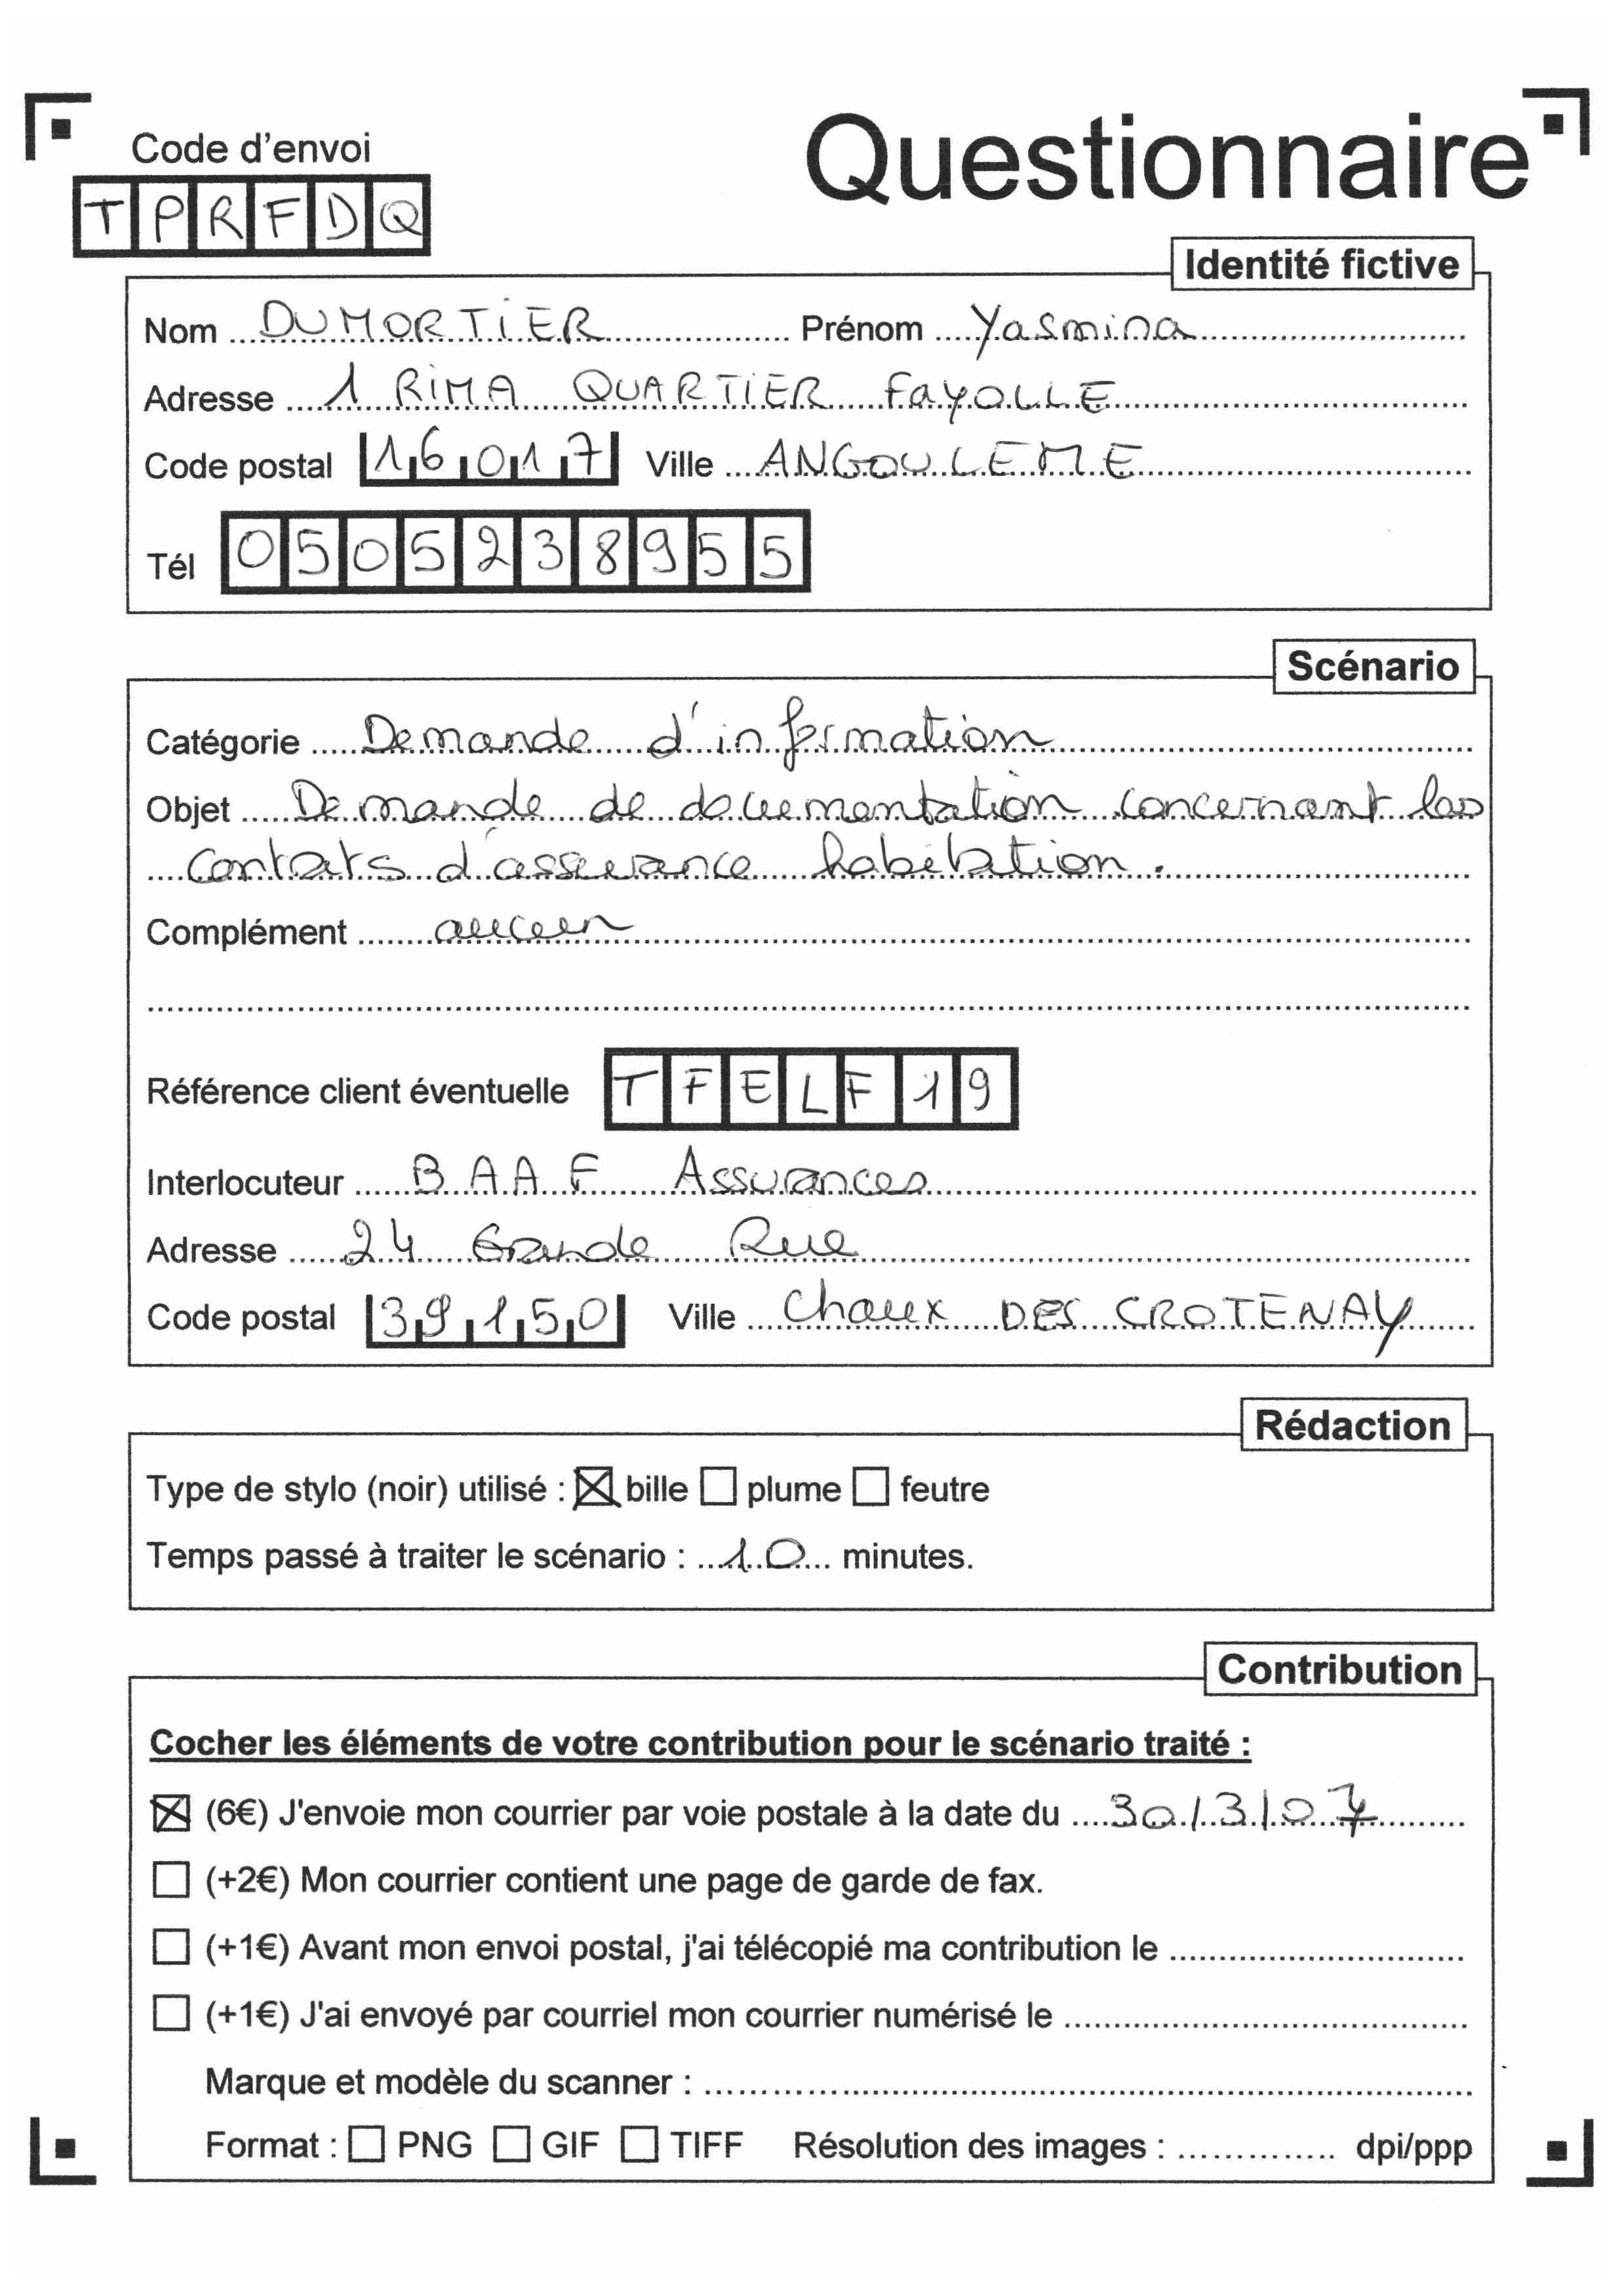 Questionnaire
Code d'envoi
TPRFDQ
Identité fictive
Nom DUMORTIER Prénom Yasmina
Adresse 1 RIMA QUARTIER FAYOLLE
Code postal 16017 Ville ANGOULEME
Tél 0505238955
Scénario
Catégorie Demande d'information
Objet Demande de documentation concernant les
contrats d'assurance habitation.
Complément aucun
Référence client éventuelle TFELF19
Interlocuteur BAAF Assurances
Adresse 24 Grande Rue
Code postal 39150 Ville Chaux DES CROTENAY
Rédaction
Type de stylo (noir) utilisé : bille plume feutre
Temps passé à traiter le scénario : 10 minutes.
Contribution
Cocher les éléments de votre contribution pour le scénario traité :
(6€) J'envoie mon courrier par voie postale à la date du 30/3/07
(+2€) Mon courrier contient une page de garde de fax.
(+1€) Avant mon envoi postal, j'ai télécopié ma contribution le
(+1€) J'ai envoyé par courriel mon courrier numérisé le
Marque et modèle du scanner :
Format : PNG GIF TIFF Résolution des images : dpi/ppp